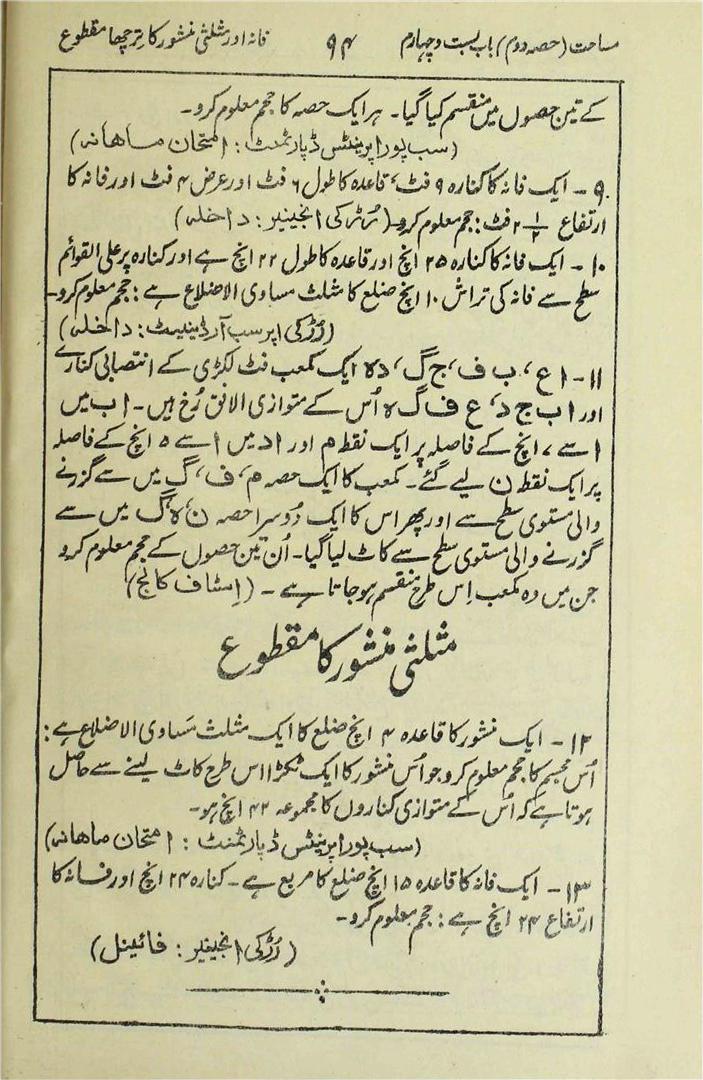 مساحت (حصہ دوم) باب بست و چہارم ۹۴ فانہ اور مثلثی منشور کا ترچھا مقطوع
کے تین حصوں میں منقسم کیا گیا۔ ہر ایک حصہ کا حجم معلوم کرو۔
(سب پورا پرینٹس ڈپارٹمنٹ : امتحان ماھانہ)
۹ ۔ ایک فانہ کا کنارہ ۹ فٹ، قاعدہ کا طول ۶ فٹ اور عرض ۴ فٹ اور فانہ کا
ارتفاع ۲ ۱/۲ فٹ : حجم معلوم کرو۔ (رُڑکی انجینیر : داخلہ)
۱۰ ۔ ایک فانہ کا کنارہ ۲۵ انچ اور قاعدہ کا طول ۲۲ انچ ہے اور کنارہ پر علی القوائم
سطح سے فانہ کی تراش ۱۰ انچ ضلع کا مثلث مساوی الاضلاع ہے : حجم معلوم کرو۔
(رُڑکی اپر سب آرڈینیٹ : داخلہ)
۱۱ ۔ ا ع ، ب ف ، ج گ ، د ہ ایک مکعب فٹ لکڑی کے انتصابی کنارے
اور ا ب ج د ، ع ف گ ہ اُس کے متوازی الافق رُخ ہیں۔ ا ب میں
ا سے ۷ انچ کے فاصلہ پر ایک نقطہ م اور ا د میں ا سے ۵ انچ کے فاصلہ
پر ایک نقطہ ن لیے گئے۔ مکعب کا ایک حصہ م ، ف ، گ میں سے گزرنے
والی مستوی سطح سے اور پھر اس کا ایک دُوسرا حصہ ن ، ہ ، گ میں سے
گزرنے والی مستوی سطح سے کاٹ لیا گیا۔ اُن تین حصوں کے حجم معلوم کرو
جن میں وہ مکعب اِس طرح منقسم ہو جاتا ہے ۔ (اِسٹاف کالج)
مثلثی منشور کا مقطوع
۱۲ ۔ ایک منشور کا قاعدہ ۴ انچ ضلع کا ایک مثلث مساوی الاضلاع ہے :
اُس مجسم کا حجم معلوم کرو جو اُس منشور کا ایک ٹکڑا اس طرح کاٹ لینے سے حاصل
ہوتا ہے کہ اُس کے متوازی کناروں کا مجموعہ ۴۲ انچ ہو۔
(سب پورا پرینٹس ڈپارٹمنٹ : امتحان ماھانہ)
۱۳ ۔ ایک فانہ کا قاعدہ ۱۵ انچ ضلع کا مربع ہے ۔ کنارہ ۲۴ انچ اور فانہ کا
ارتفاع ۲۴ انچ ہے : حجم معلوم کرو۔
(رُڑکی انجینیر : فائینل)